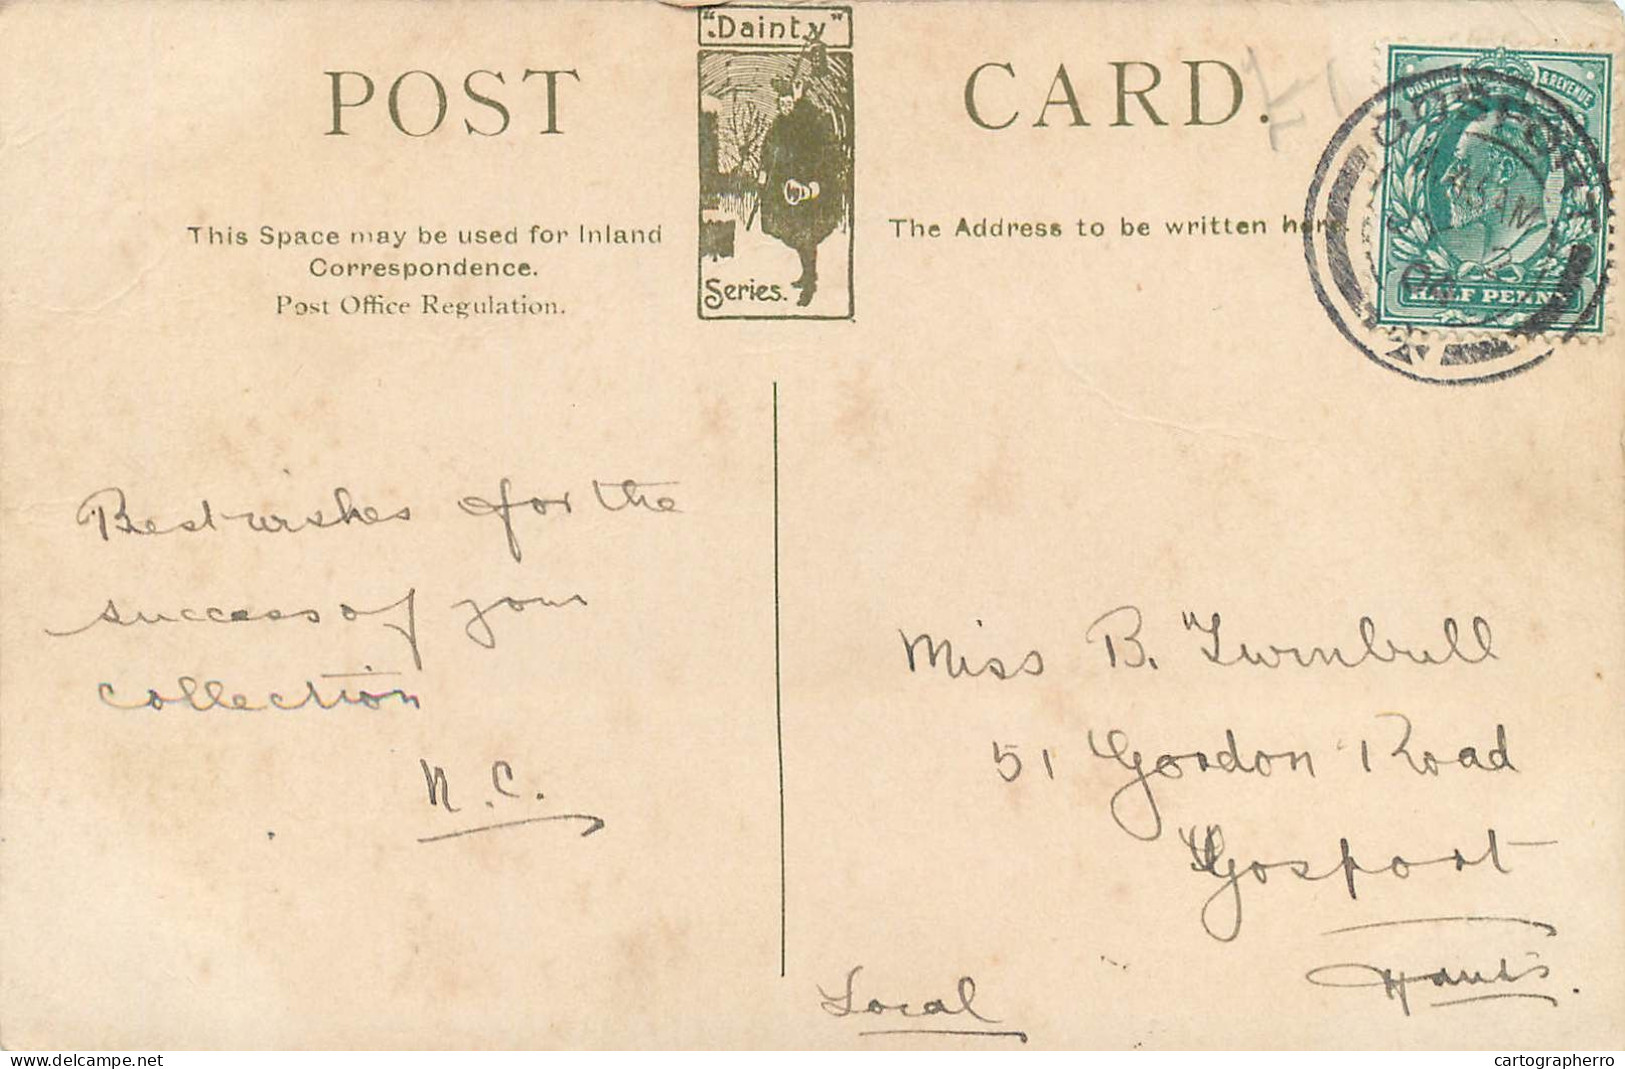 "Dainty"
Series.
POST CARD.
This Space may be used for Inland
Correspondence.
Post Office Regulation.
The Address to be written here.
POSTAGE & REVENUE
HALF PENNY
GOSPORT
Best wishes for the
success of your
collection
N.C.
Miss B. Turnbull
51 Gordon Road
Gosport
Hants.
Local
delcampe.net
cartographerro